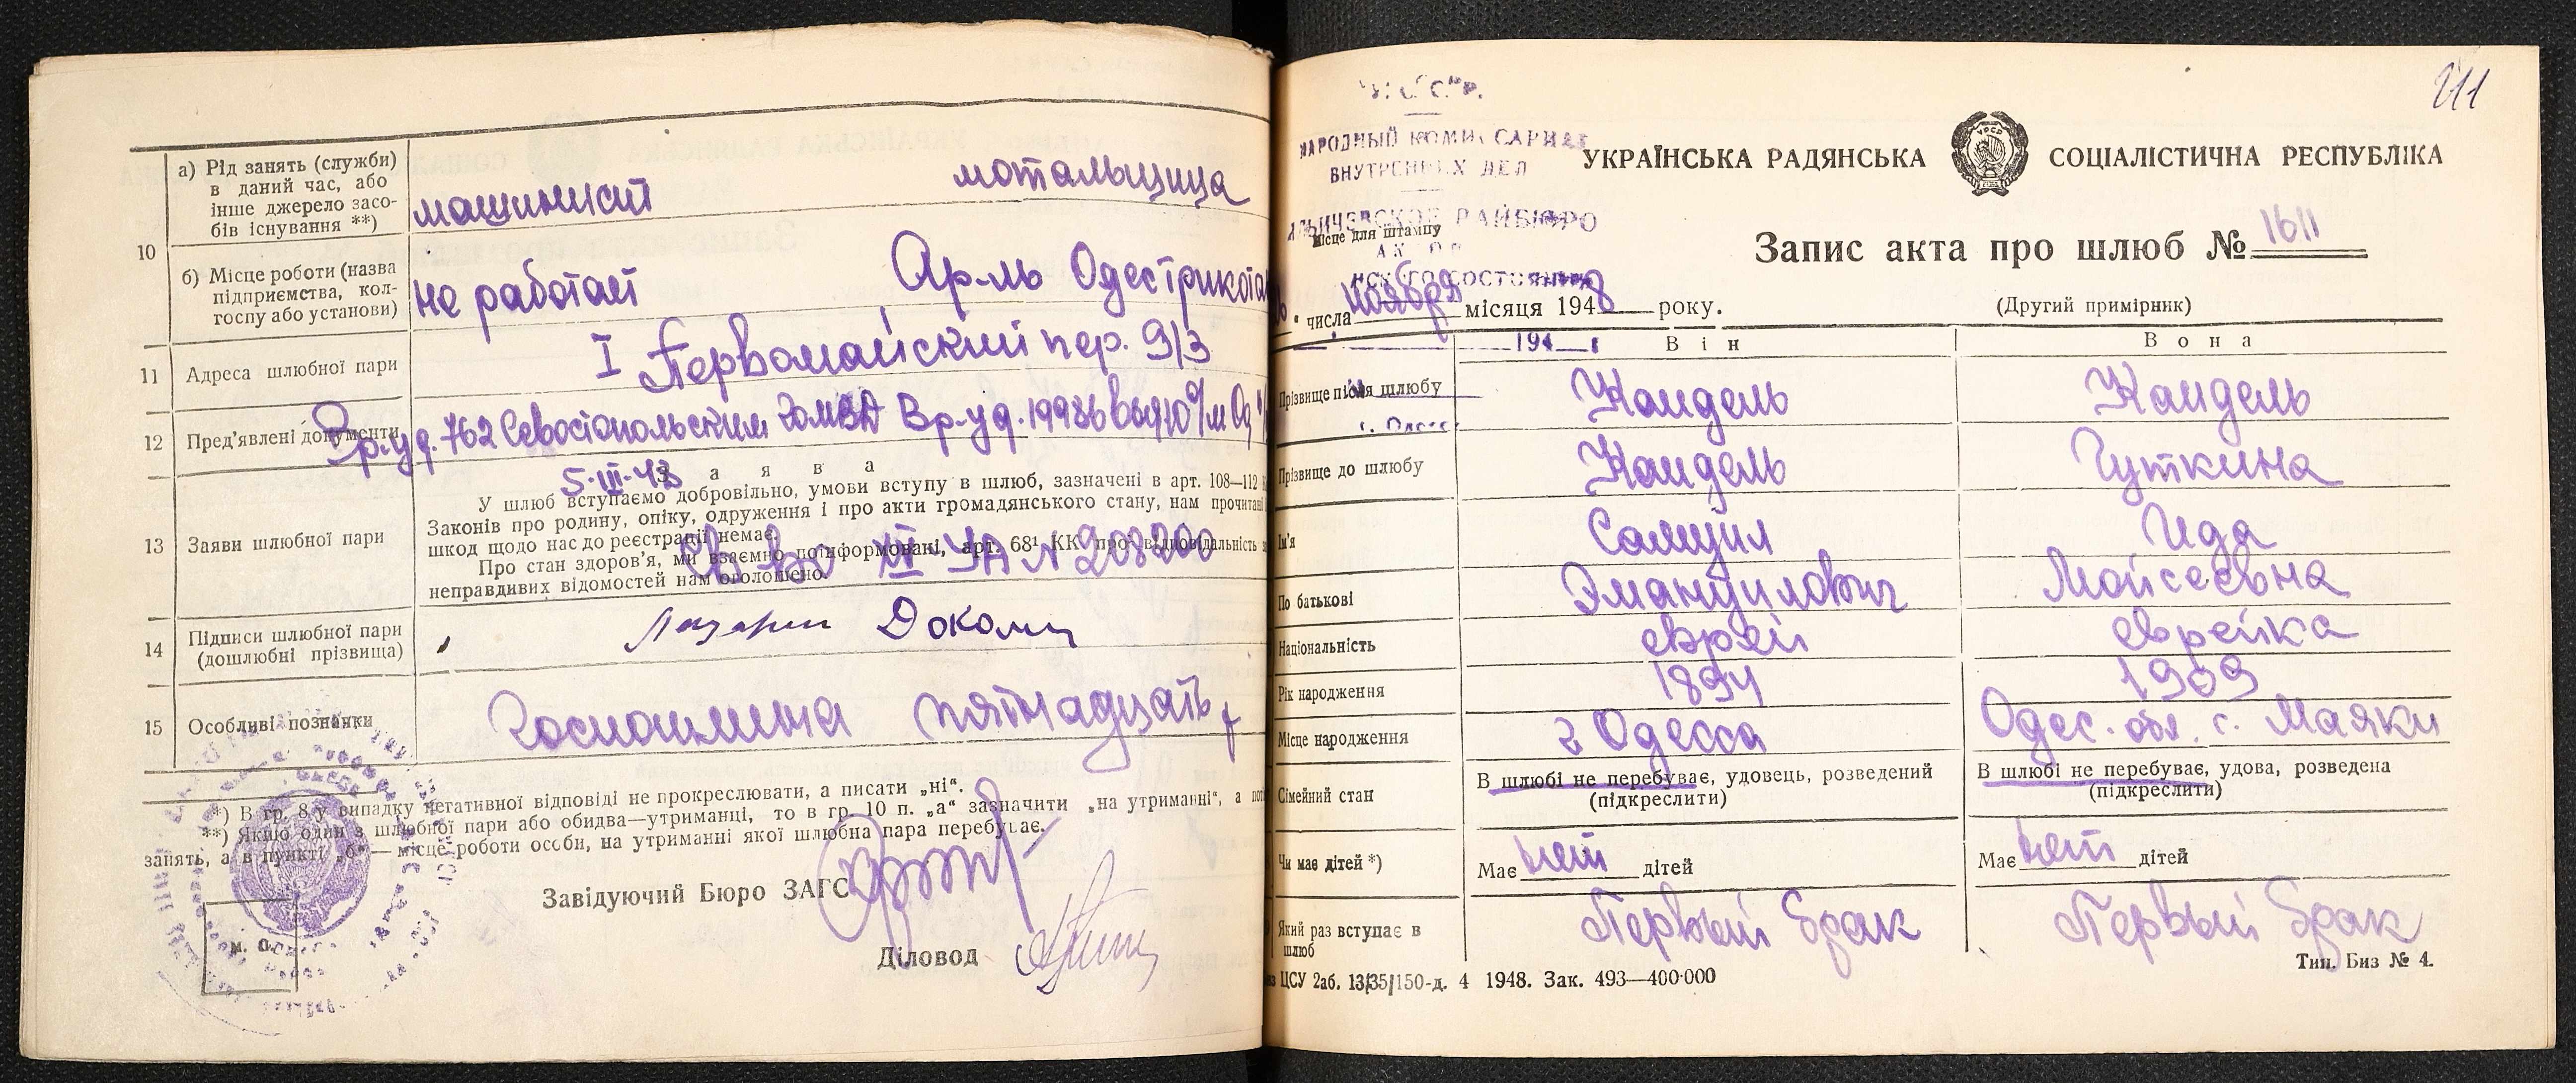 10
а) Рід занять (служби)
в даний час, або
інше джерело засо-
бів існування **)
машинист
мотальщица
б) Місце роботи (назва
підприємства, кол-
госпу або установи)
не работает
Ар-ль Одестрикота
11 Адреса шлюбної пари
I Первомайский пер. 9/3
12 Пред'явлені документи
Вр. уд. 762 Севастопольским Вр. уд.
5-III-43
13 Заяви шлюбної пари
З а я в а
У шлюб вступаємо добровільно, умови вступу в шлюб, зазначені в арт. 108—112
Законів про родину, опіку, одруження і про акти громадянського стану, нам прочитані
шкод щодо нас до реєстрації немає.
Про стан здоров'я, ми взаємно поінформовані, арт. 68¹ КК про відповідальність з
неправдивих відомостей нам оголошено.
XV-УА № 208200
14 Підписи шлюбної пари
(дошлюбні прізвища)
15 Особливі познанки
Госпошлина пятнадцать
*) В гр. 8 у випадку негативної відповіді не прокреслювати, а писати „ні“.
**) Якщо один з шлюбної пари або обидва—утриманці, то в гр. 10 п. „а“ зазначити „на утриманні“, а
занять, а в пункті „б“ — місце роботи особи, на утриманні якої шлюбна пара перебуває.
Завідуючий Бюро ЗАГС
м. О.
Діловод
211
У. С. С. Р.
НАРОДНЫЙ КОМИССАРИАТ
ВНУТРЕННИХ ДЕЛ
ИЛЬИЧЕВСКОЕ РАЙБЮРО
Місце для штампу
УКРАЇНСЬКА РАДЯНСЬКА СОЦІАЛІСТИЧНА РЕСПУБЛІКА
УРСР
Запис акта про шлюб № 1611
(Другий примірник)
числа ноября місяця 1948 року.
194
Він Вона
Прізвище після шлюбу Кандель Кандель
г. Одесс
Прізвище до шлюбу Кандель Гуткина
Ім'я Самуил Ида
По батькові Эмануилович Мойсеевна
Національність еврей еврейка
Рік народження 1894 1909
Місце народження г Одесса Одес. обл. с. Маяки
Сімейний стан
В шлюбі не перебуває, удовець, розведений
(підкреслити)
В шлюбі не перебуває, удова, розведена
(підкреслити)
Чи має дітей *) Має нет дітей Має нет дітей
Який раз вступає в
шлюб
Первый брак Первый брак
Тип. Биз № 4.
ЦСУ 2аб. 13/35/150-д. 4 1948. Зак. 493—400·000